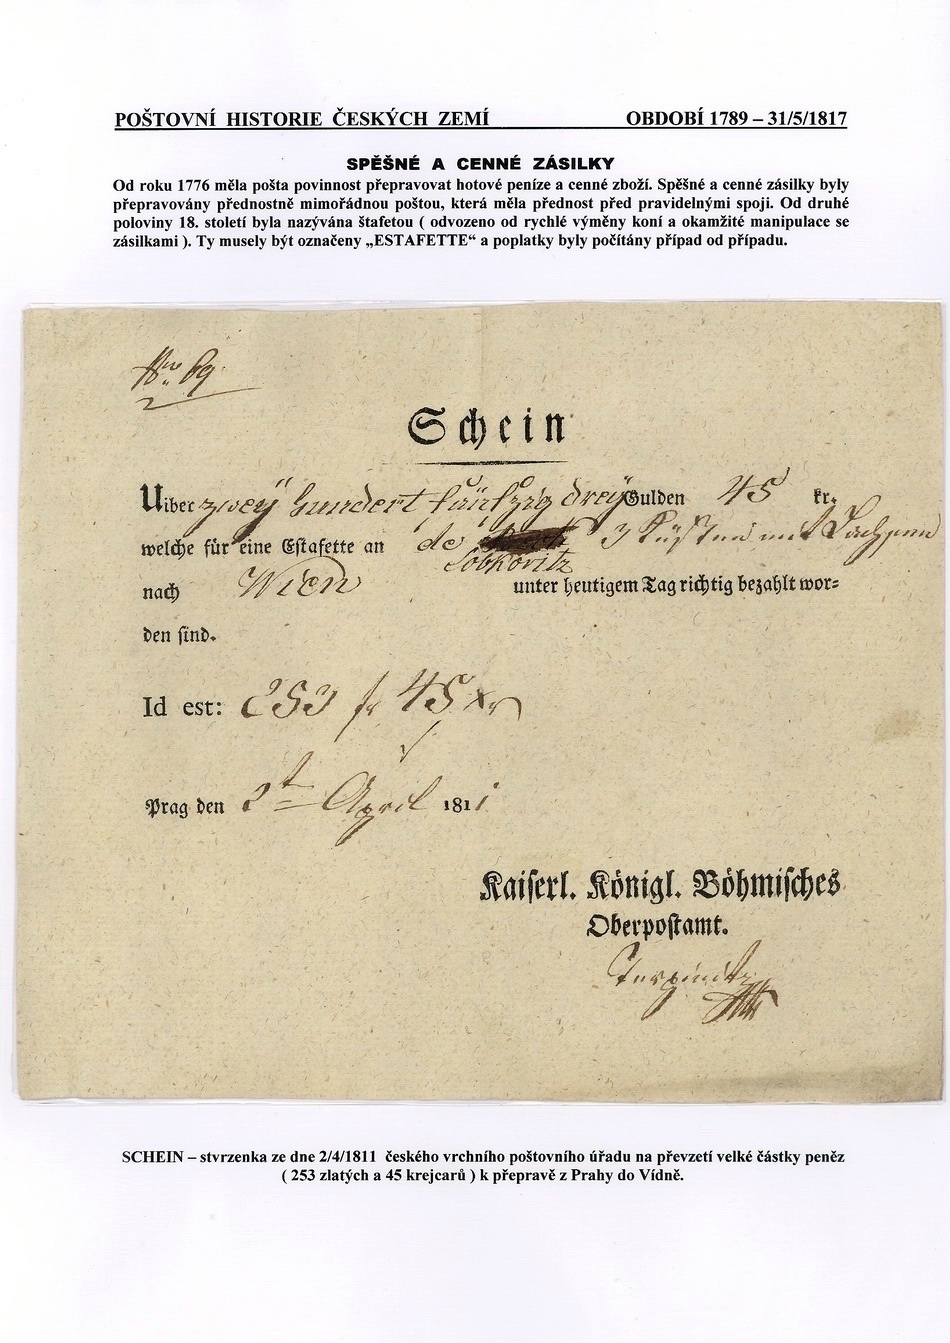 POŠTOVNÍ HISTORIE ČESKÝCH ZEMÍ OBDOBÍ 1789 – 31/5/1817
SPĚŠNÉ A CENNÉ ZÁSILKY
Od roku 1776 měla pošta povinnost přepravovat hotové peníze a cenné zboží. Spěšné a cenné zásilky byly
přepravovány přednostně mimořádnou poštou, která měla přednost před pravidelnými spoji. Od druhé
poloviny 18. století byla nazývána štafetou ( odvozeno od rychlé výměny koní a okamžité manipulace se
zásilkami ). Ty musely být označeny „ESTAFETTE“ a poplatky byly počítány případ od případu.
Nro 69
Schein
Uiber zwey hundert fünfzig drey Gulden 45 kr.
welche für eine Estafette an de 3 Küsten mit
Lobkovitz
nach Wien unter heutigem Tag richtig bezahlt wor=
den sind.
Id est: 253 fr 45 xr
Prag den 2t April 1811
Kaiserl. Königl. Böhmisches
Oberpostamt.
SCHEIN – stvrzenka ze dne 2/4/1811 českého vrchního poštovního úřadu na převzetí velké částky peněz
( 253 zlatých a 45 krejcarů ) k přepravě z Prahy do Vídně.